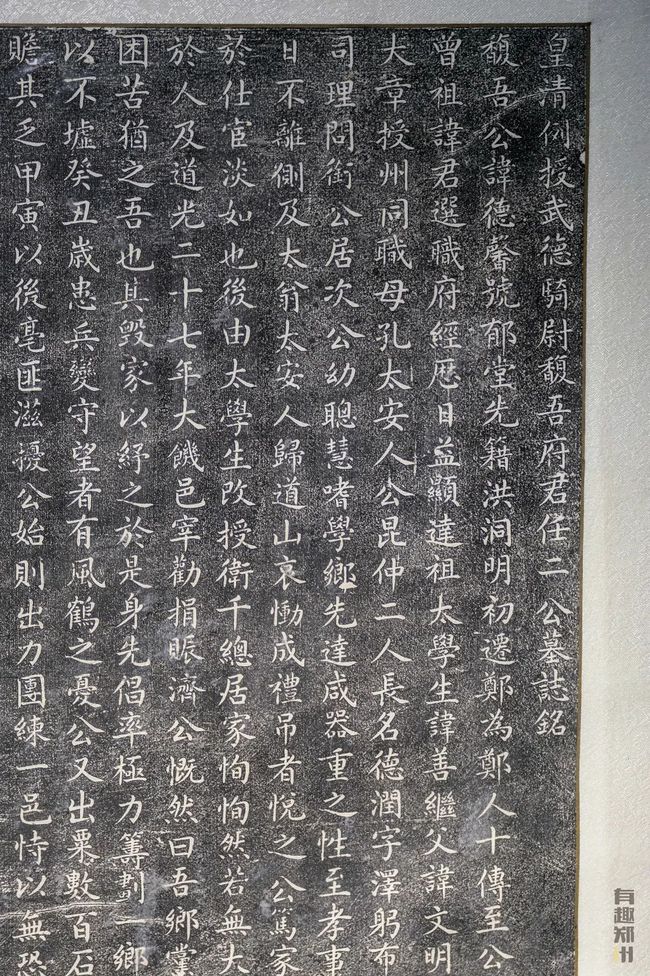 皇清例授武德騎尉馥吾府君任二公墓誌銘
馥吾公諱德馨號郁堂先籍洪洞明初遷鄭為鄭人十傳至公
曾祖諱君選職府經歷日益顯達祖太學生諱善繼父諱文明
大章授州同職母孔太安人公昆仲二人長名德潤字澤躬布
司理問銜公居次公幼聰慧嗜學鄉先達咸器重之性至孝事
日不離側及太翁太安人歸道山哀慟成禮吊者悅之公篤家
於仕宦淡如也後由太學生改授衛千總居家恂恂然若無大
於人及道光二十七年大饑邑宰勸捐賑濟公慨然曰吾鄉黨
困苦猶之吾也其毀家以紓之於是身先倡率極力籌劃一鄉
以不墟癸丑歲患兵變守望者有風鶴之憂公又出粟數百石
贍其乏甲寅以後亳匪滋擾公始則出力團練一邑恃以無恐
有趣郑州